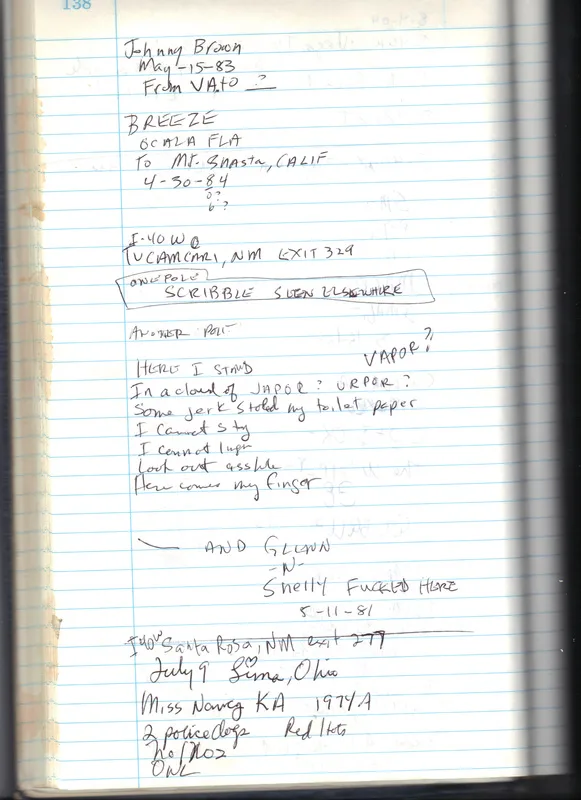 138
Johnny Brown
May-15-83
From VA.to ?
BREEZE
OCALA FLA
To Mt. Shasta, CALIF
4-30-84
0?
6?
I-40 W @
TUCAMCARI, NM EXIT 329
ONE POLE
SCRIBBLE SEEN ELSEWHERE
ANOTHER POLE
HERE I STAND
VAPOR?
In a cloud of JAPOR? URPOR?
Some jerk stoled my toilet paper
I cannot stay
I cannot linger
Look out asshole
Here comes my finger
AND GLENN
-N-
Shelly FUCKED HERE
5-11-81
I40W Santa Rosa, NM exit 277
July 9 Lima, Ohio
Miss Nancy KA 1974A
2 police dogs Red
OWL